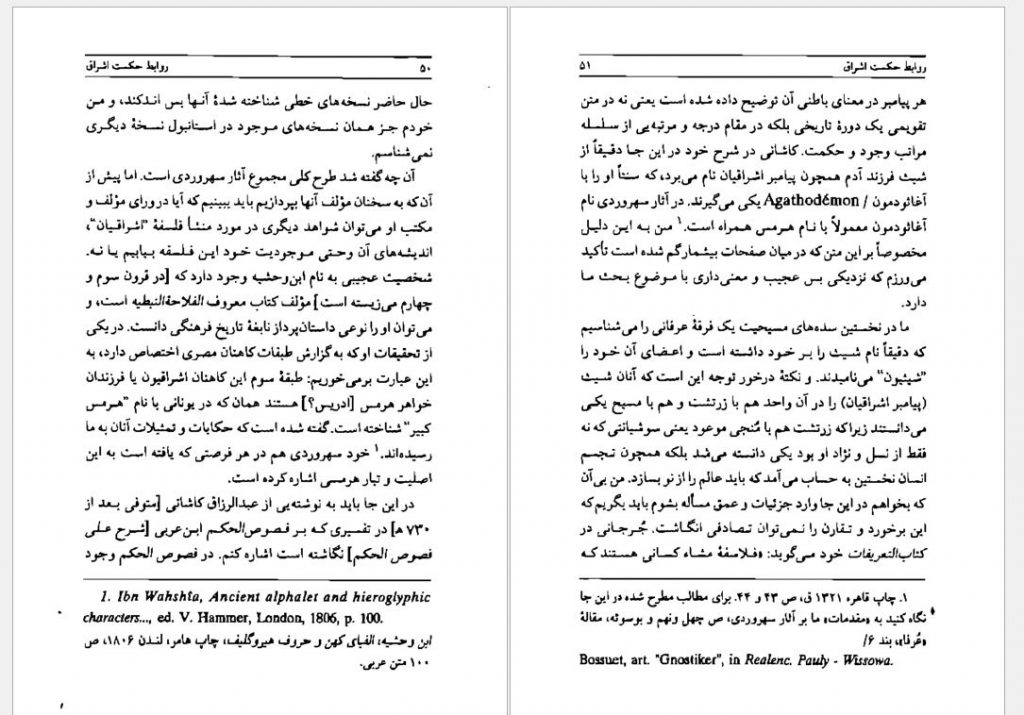 ۵۰ روابط حکمت اشراق
حال حاضر نسخه‌های خطی شناخته شدهٔ آنها بس اندکند، و من
خودم جز همان نسخه‌های موجود در استانبول نسخهٔ دیگری
نمی‌شناسم.
آن چه گفته شد طرح کلی مجموع آثار سهروردی است. اما پیش از
آن‌که به سخنان مؤلف آنها بپردازیم باید ببینیم که آیا در ورای مؤلف و
مکتب او می‌توان شواهد دیگری در مورد منشأ فلسفهٔ "اشراقیان"،
اندیشه‌های آن وحتی موجودیت خود این فلسفه بیابیم یا نه.
شخصیت عجیبی به نام ابن‌وحشیه وجود دارد که [در قرون سوم و
چهارم می‌زیسته است] مؤلف کتاب معروف الفلاحة‌النبطیه است، و
می‌توان او را نوعی داستان‌پرداز نابغهٔ تاریخ فرهنگی دانست. در یکی
از تحقیقات او که به گزارش طبقات کاهنان مصری اختصاص دارد، به
این عبارت برمی‌خوریم: طبقهٔ سوم این کاهنان اشراقیون یا فرزندان
خواهر هرمس [ادریس؟] هستند همان که در یونانی با نام "هرمس
کبیر" شناخته است. گفته شده است که حکایات و تمثیلات آنان به ما
رسیده‌اند.۱ خود سهروردی هم در هر فرصتی که یافته است به این
اصلیت و تبار هرمسی اشاره کرده است.
در این جا باید به نوشته‌یی از عبدالرزاق کاشانی [متوفی بعد از
۷۳۰ ه] در تفسیری که بر فصوص‌الحکم ابن‌عربی [شرح علی
فصوص الحکم] نگاشته است اشاره کنم. در فصوص الحکم وجود
1. Ibn Wahshta, Ancient alphalet and hieroglyphic
characters..., ed. V. Hammer, London, 1806, p. 100.
ابن وحشیه، الفبای کهن و حروف هیروگلیف، چاپ هامر، لندن ۱۸۰۶، ص
۱۰۰ متن عربی.
روابط حکمت اشراق ۵۱
هر پیامبر در معنای باطنی آن توضیح داده شده است یعنی نه در متن
تقویمی یک دورهٔ تاریخی بلکه در مقام درجه و مرتبه‌یی از سلسله
مراتب وجود و حکمت. کاشانی در شرح خود در این جا دقیقاً از
شیث فرزند آدم همچون پیامبر اشراقیان نام می‌برد، که سنتاً او را با
آغاثودمون / Agathodémon یکی می‌گیرند. در آثار سهروردی نام
آغاثودمون معمولاً با نام هرمس همراه است.۱ من به این دلیل
مخصوصاً بر این متن که در میان صفحات بیشمار گم شده است تأکید
می‌ورزم که نزدیکی بس عجیب و معنی‌داری با موضوع بحث ما
دارد.
ما در نخستین سده‌های مسیحیت یک فرقهٔ عرفانی را می‌شناسیم
که دقیقاً نام شیث را بر خود داشته است و اعضای آن خود را
"شیثیون" می‌نامیدند. و نکتهٔ درخور توجه این است که آنان شیث
(پیامبر اشراقیان) را در آن واحد هم با زرتشت و هم با مسیح یکی
می‌دانستند زیرا که زرتشت هم با مُنجی موعود یعنی سوشیانتی که نه
فقط از نسل و نژاد او بود یکی دانسته می‌شد بلکه همچون تجسم
انسان نخستین به حساب می‌آمد که باید عالم را از نو بسازد. من بی‌آن
که بخواهم در این جا وارد جزئیات و عمق مسأله بشوم باید بگریم که
این برخورد و تقارن را نمی‌توان تصادفی انگاشت. جُرجانی در
کتاب‌التعریفات خود می‌گوید: «فلاسفهٔ مشاء کسانی هستند که
۱. چاپ قاهره ۱۳۲۱ ق، ص ۴۳ و ۴۴. برای مطالب مطرح شده در این جا
نگاه کنید به «مقدمات» ما بر آثار سهروردی، ص چهل ونهم و بوسوئه، مقالهٔ
«عُرفا»، بند ۶/
Bossuet, art. "Gnostiker", in Realenc. Pauly - Wissowa.